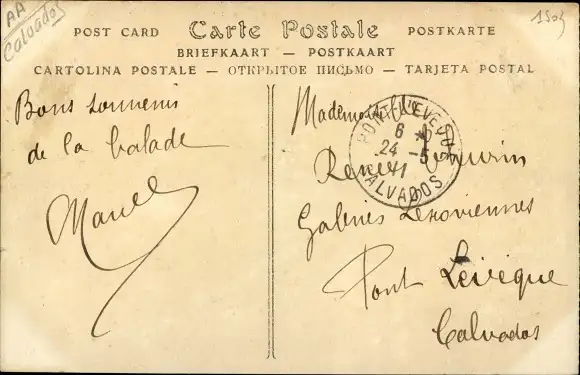 AA
Calvados
1503
POST CARD
Carte Postale
POSTKARTE
BRIEFKAART — POSTKAART
CARTOLINA POSTALE — ОТКРЫТОЕ ПИСЬМО — TARJETA POSTAL
Bons souvenirs
de la balade
Marcel
Mademoiselle
Renée
Galeries Lexoviennes
Pont Levèque
Calvados
PONT-L'EVEQUE
24 -5
CALVADOS